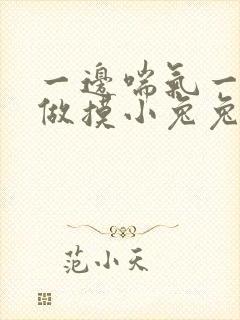 一邊喘氣一
做摸小兔兔
范小天